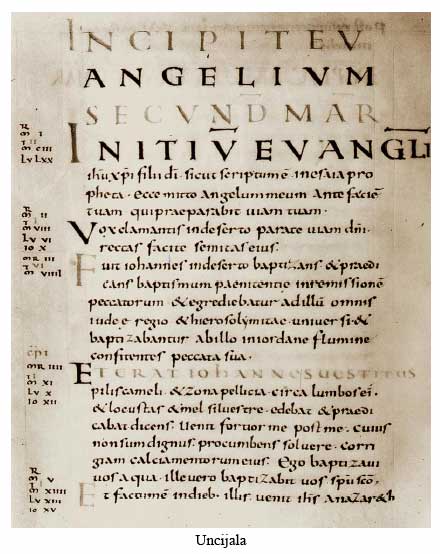 INCIPIT EV
ANGELIVM
SECVND MAR
INITIV EVANGLI
ihu xpi filii di. sicut scriptum e. in esaia pro
pheta. Ecce mitto angelum meum ante facie
tuam qui praeparabit uiam tuam.
Vox clamantis in deserto parate uiam dni
rectas facite semitas eius.
Fuit iohannes in deserto baptizans. & praedi
cans baptismum paenitentiae in remissione
peccatorum. & egrediebatur ad illu omnis
iudeae regio. & hierosolymitae uniuersi. &
baptizabantur ab illo in iordane flumine
confitentes peccata sua.
ET ERAT IOHANNES UESTITUS
pilis cameli. & zona pellicia circa lumbos ei.
& locustas & mel siluestre edebat & praedi
cabat dicens. Uenit fortior me post me. cuius
non sum dignus procumbens soluere corri
giam calciamentorum eius. Ego baptizaui
uos aqua. ille uero baptizabit uos spu sco.
Et factum e in dieb. illis. uenit ihs a nazareth
R
M I
M III
LV LXX
R
M II
M VIII
LV VI
IO X
MR III
M VIIII
MR IIII
M XI
LV X
IO XII
R
M V
M XIIII
LV XIII
IO XV
Uncijala